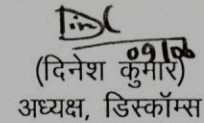 09/06
(दिनेश कुमार)
अध्यक्ष, डिस्कॉम्स